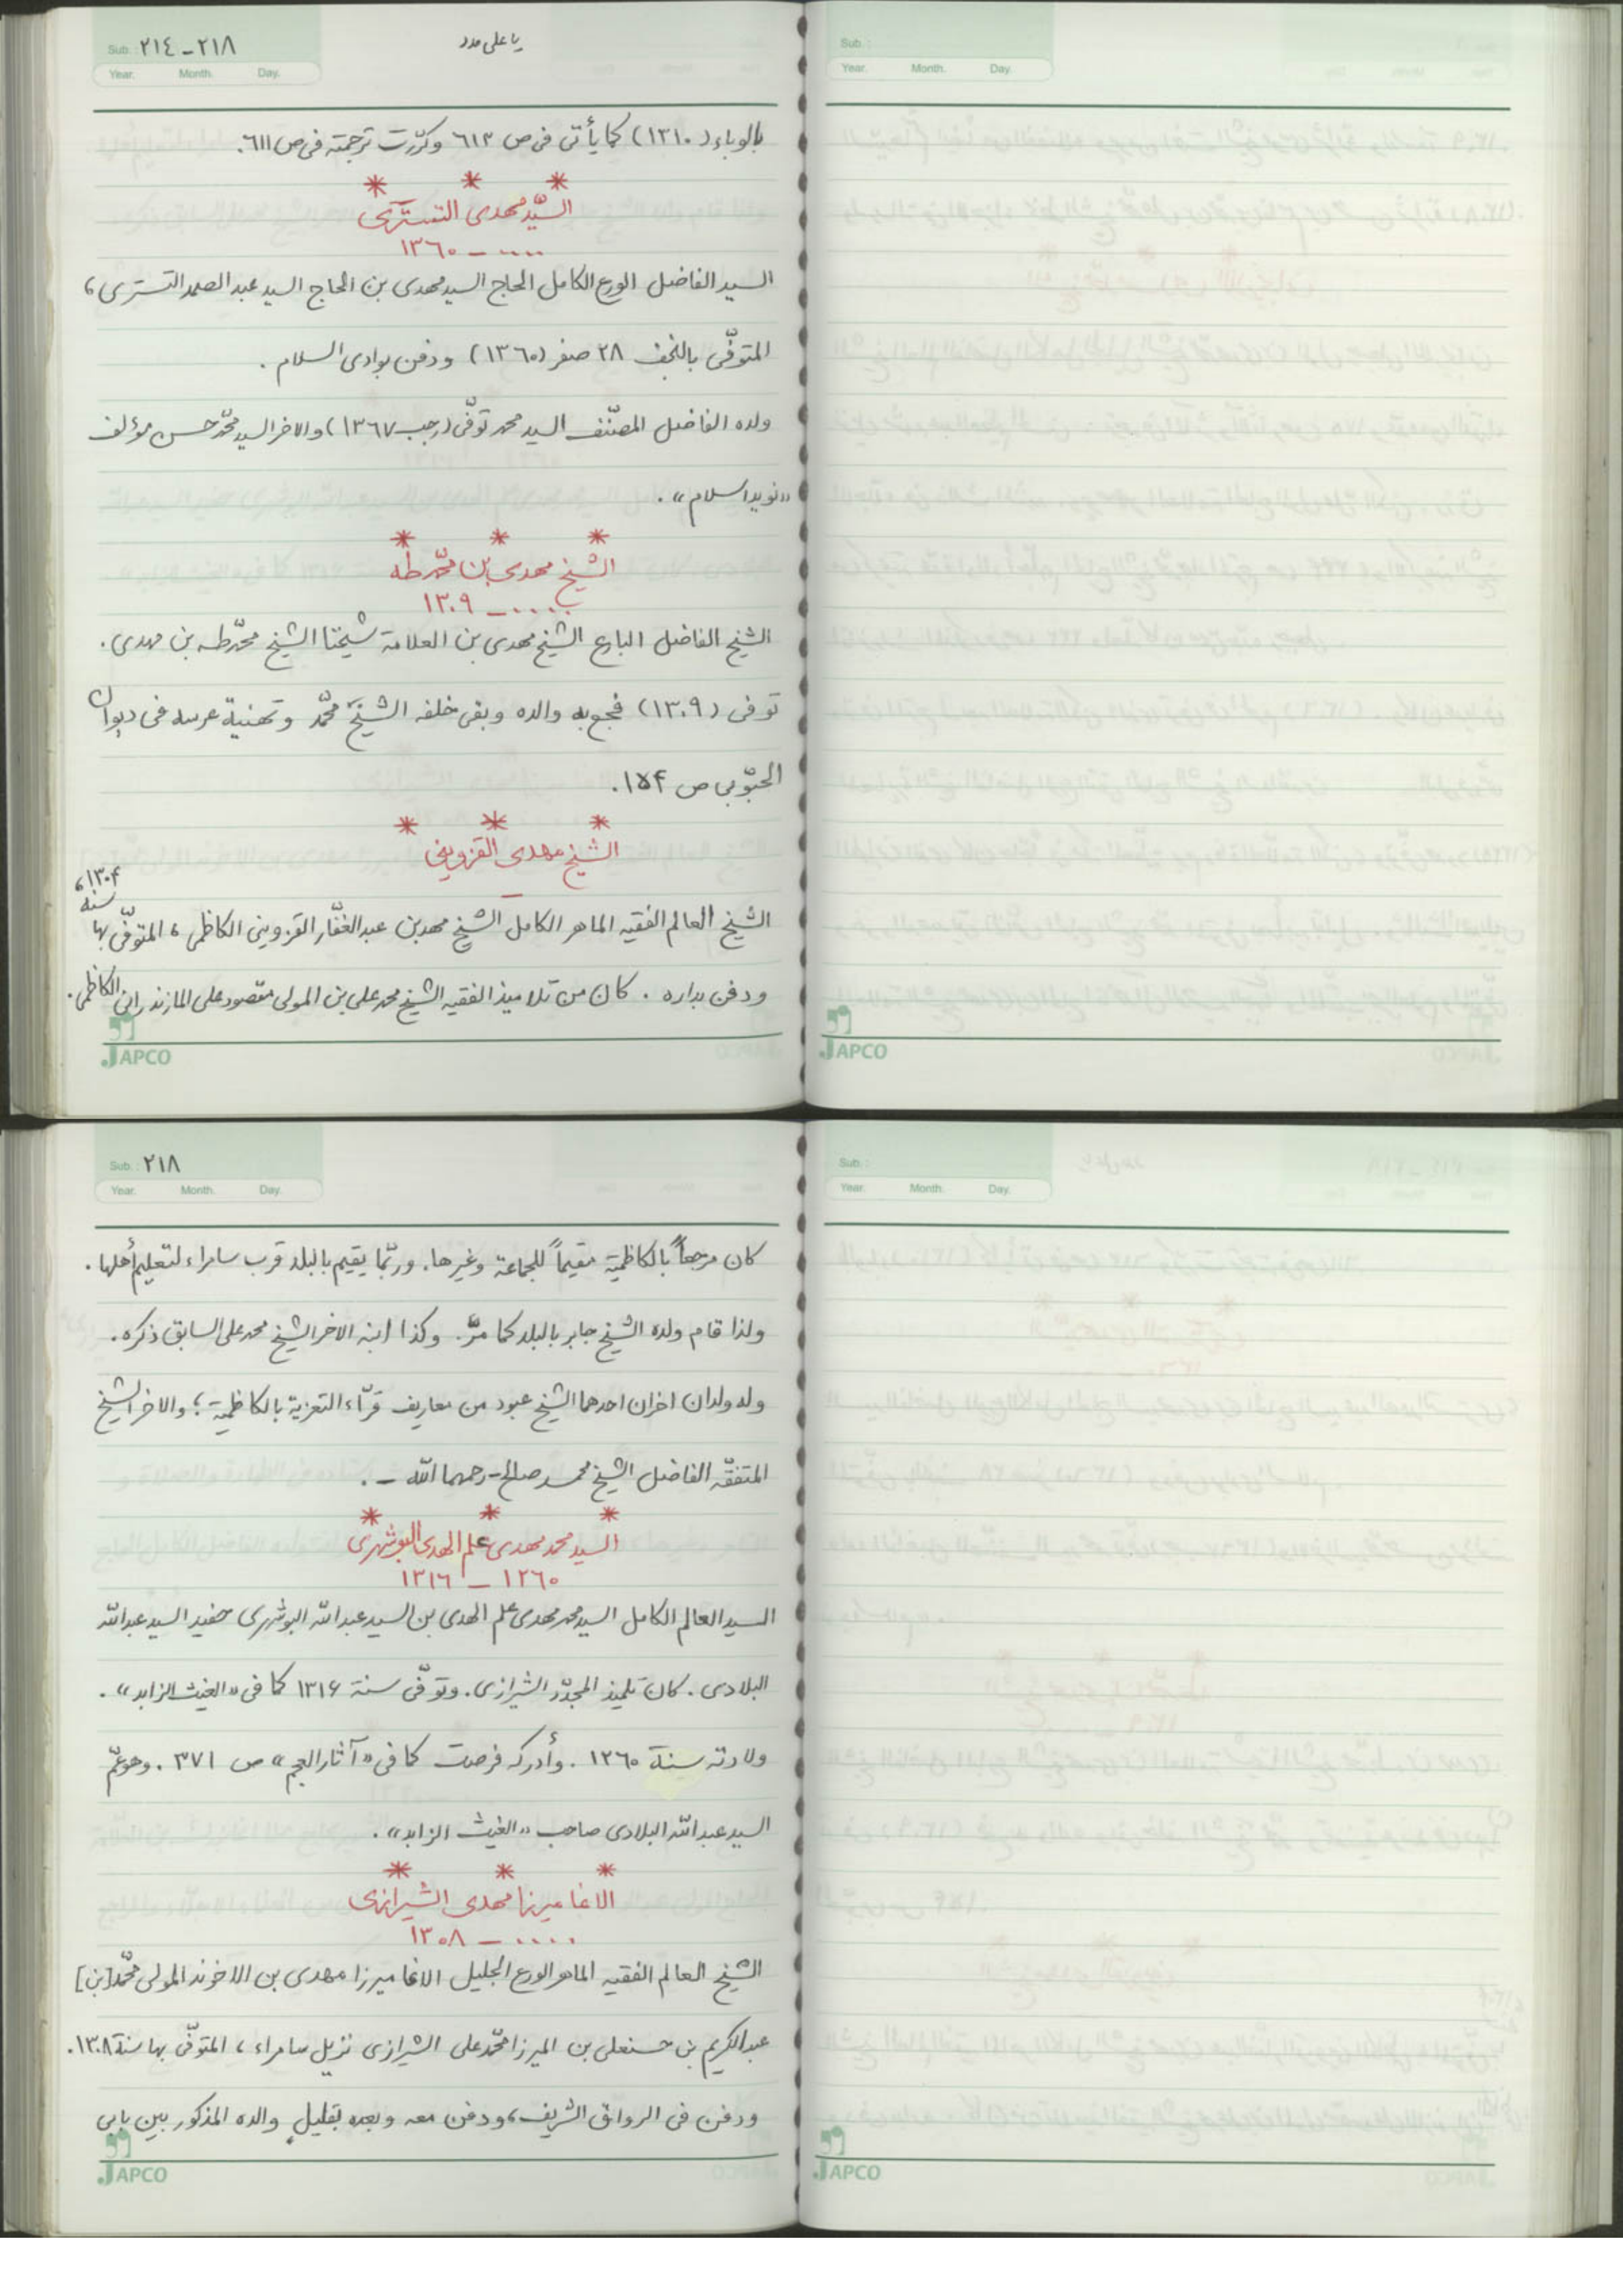 Sub. ٢١٤-٢١٨
Year. Month. Day.
یا علی مدد
Sub. :
Year. Month. Day.
بالوباء (١٣١٠) كما يأتى فى ص ٦١٣ وكرّرت ترجمته فى ص ٦١١.
* * *
السيّد مهدى التسترى
.... – ١٣٦٠
السيد الفاضل الورع الكامل الحاج السيد مهدى بن الحاج السيد عبد الصمد التسترى،
المتوفّى بالنجف ٢٨ صفر (١٣٦٠) ودفن بوادى السلام .
ولده الفاضل المصنّف السيد محمد توفّى (رجب ١٣٦٧) والاخر السيد محمّد حسن مؤلف
«نويد اسلام» .
* * *
الشيخ مهدى بن محمّد طه
..... – ١٣٠٩
الشيخ الفاضل البارع الشيخ مهدى بن العلامة شيخنا الشيخ محمّد طه بن مهدى .
توفى (١٣٠٩) فجع به والده وبقى خلفه الشيخ محمّد وتهنية عرسه فى ديوان
الحبّوبى ص ١٥۴ .
* * *
الشيخ مهدى القزوينى
–
الشيخ العالم الفقيه الماهر الكامل الشيخ مهد بن عبد الغفّار القزوينى الكاظمى ، المتوفّى بها سنه ١٣٠۴،
ودفن بداره . كان من تلاميذ الفقيه الشيخ محمد على بن المولى مقصود على المازندرانى الكاظمى .
JAPCO
JAPCO
Sub. : ٢١٨
Year. Month. Day.
Sub. :
Year. Month. Day.
كان مرجعاً بالكاظمية مقيماً للجماعة وغيرها . وربّما يقيم بالبلد قرب سامراء لتعليم أهلها .
ولذا قام ولده الشيخ جابر بالبلد كما مرّ . وكذا ابنه الاخر الشيخ محمد على السابق ذكره .
وله ولدان اخران احدهما الشيخ عبود من معاريف قرّاء التعزية بالكاظمية ؛ والاخر الشيخ
المتفقّه الفاضل الشيخ محمد صالح - رحمهما الله - .
* * *
السيد محمد مهدى علم الهدى البوشهرى
١٢٦٠ – ١٣١٦
السيد العالم الكامل السيد محمد مهدى علم الهدى بن السيد عبد الله البوشهرى حفيد السيد عبد الله
البلادى . كان تلميذ المجدّد الشيرازى . وتوفّى سنة ١٣١۶ كما فى «الغيث الزابد» .
ولادته سنة ١٢٦٠ . وأدركه فرصت كما فى «آثار العجم» ص ٣٧١ . وهو عمّ
السيد عبد الله البلادى صاحب «الغيث الزابد» .
* * *
الاغا ميرزا مهدى الشيرازى
.... – ١٣٠٨
الشيخ العالم الفقيه الماهر الورع الجليل الاغا ميرزا مهدى بن الاخوند المولى محمّد [بن]
عبد الكريم بن حسنعلى بن الميرزا محمّد على الشيرازى نزيل سامراء ، المتوفّى بها سنة ١٣٠٨ .
ودفن فى الرواق الشريف، ودفن معه وبعده بقليل والده المذكور بين بابى
JAPCO
JAPCO